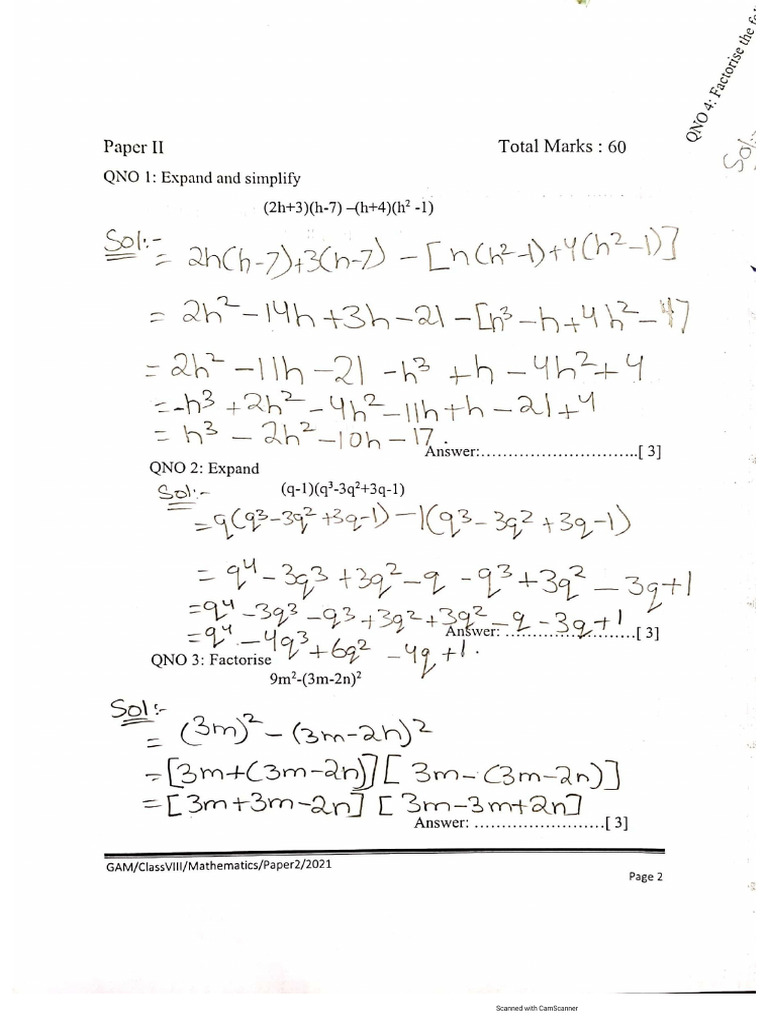 QNO 4: Factorise the
Sol:-
Paper II Total Marks : 60
QNO 1: Expand and simplify
(2h+3)(h-7) –(h+4)(h² -1)
Sol:- = 2h(h-7)+3(h-7) - [h(h²-1)+4(h²-1)]
= 2h²-14h+3h-21-[h³-h+4h²-4]
= 2h²-11h-21-h³+h-4h²+4
=-h³+2h²-4h²-11h+h-21+4
= h³-2h²-10h-17.
Answer:.............................[ 3]
QNO 2: Expand
Sol:- (q-1)(q³-3q²+3q-1)
=q(q³-3q²+3q-1)-1(q³-3q²+3q-1)
= q⁴-3q³+3q²-q-q³+3q²-3q+1
=q⁴-3q³-q³+3q²+3q²-q-3q+1
Answer: ........................[ 3]
=q⁴-4q³+6q²-4q+1.
QNO 3: Factorise
9m²-(3m-2n)²
Sol:-
= (3m)²-(3m-2n)²
=[3m+(3m-2n)][3m-(3m-2n)]
=[3m+3m-2n][3m-3m+2n]
Answer: ........................[ 3]
GAM/ClassVIII/Mathematics/Paper2/2021
Page 2
Scanned with CamScanner